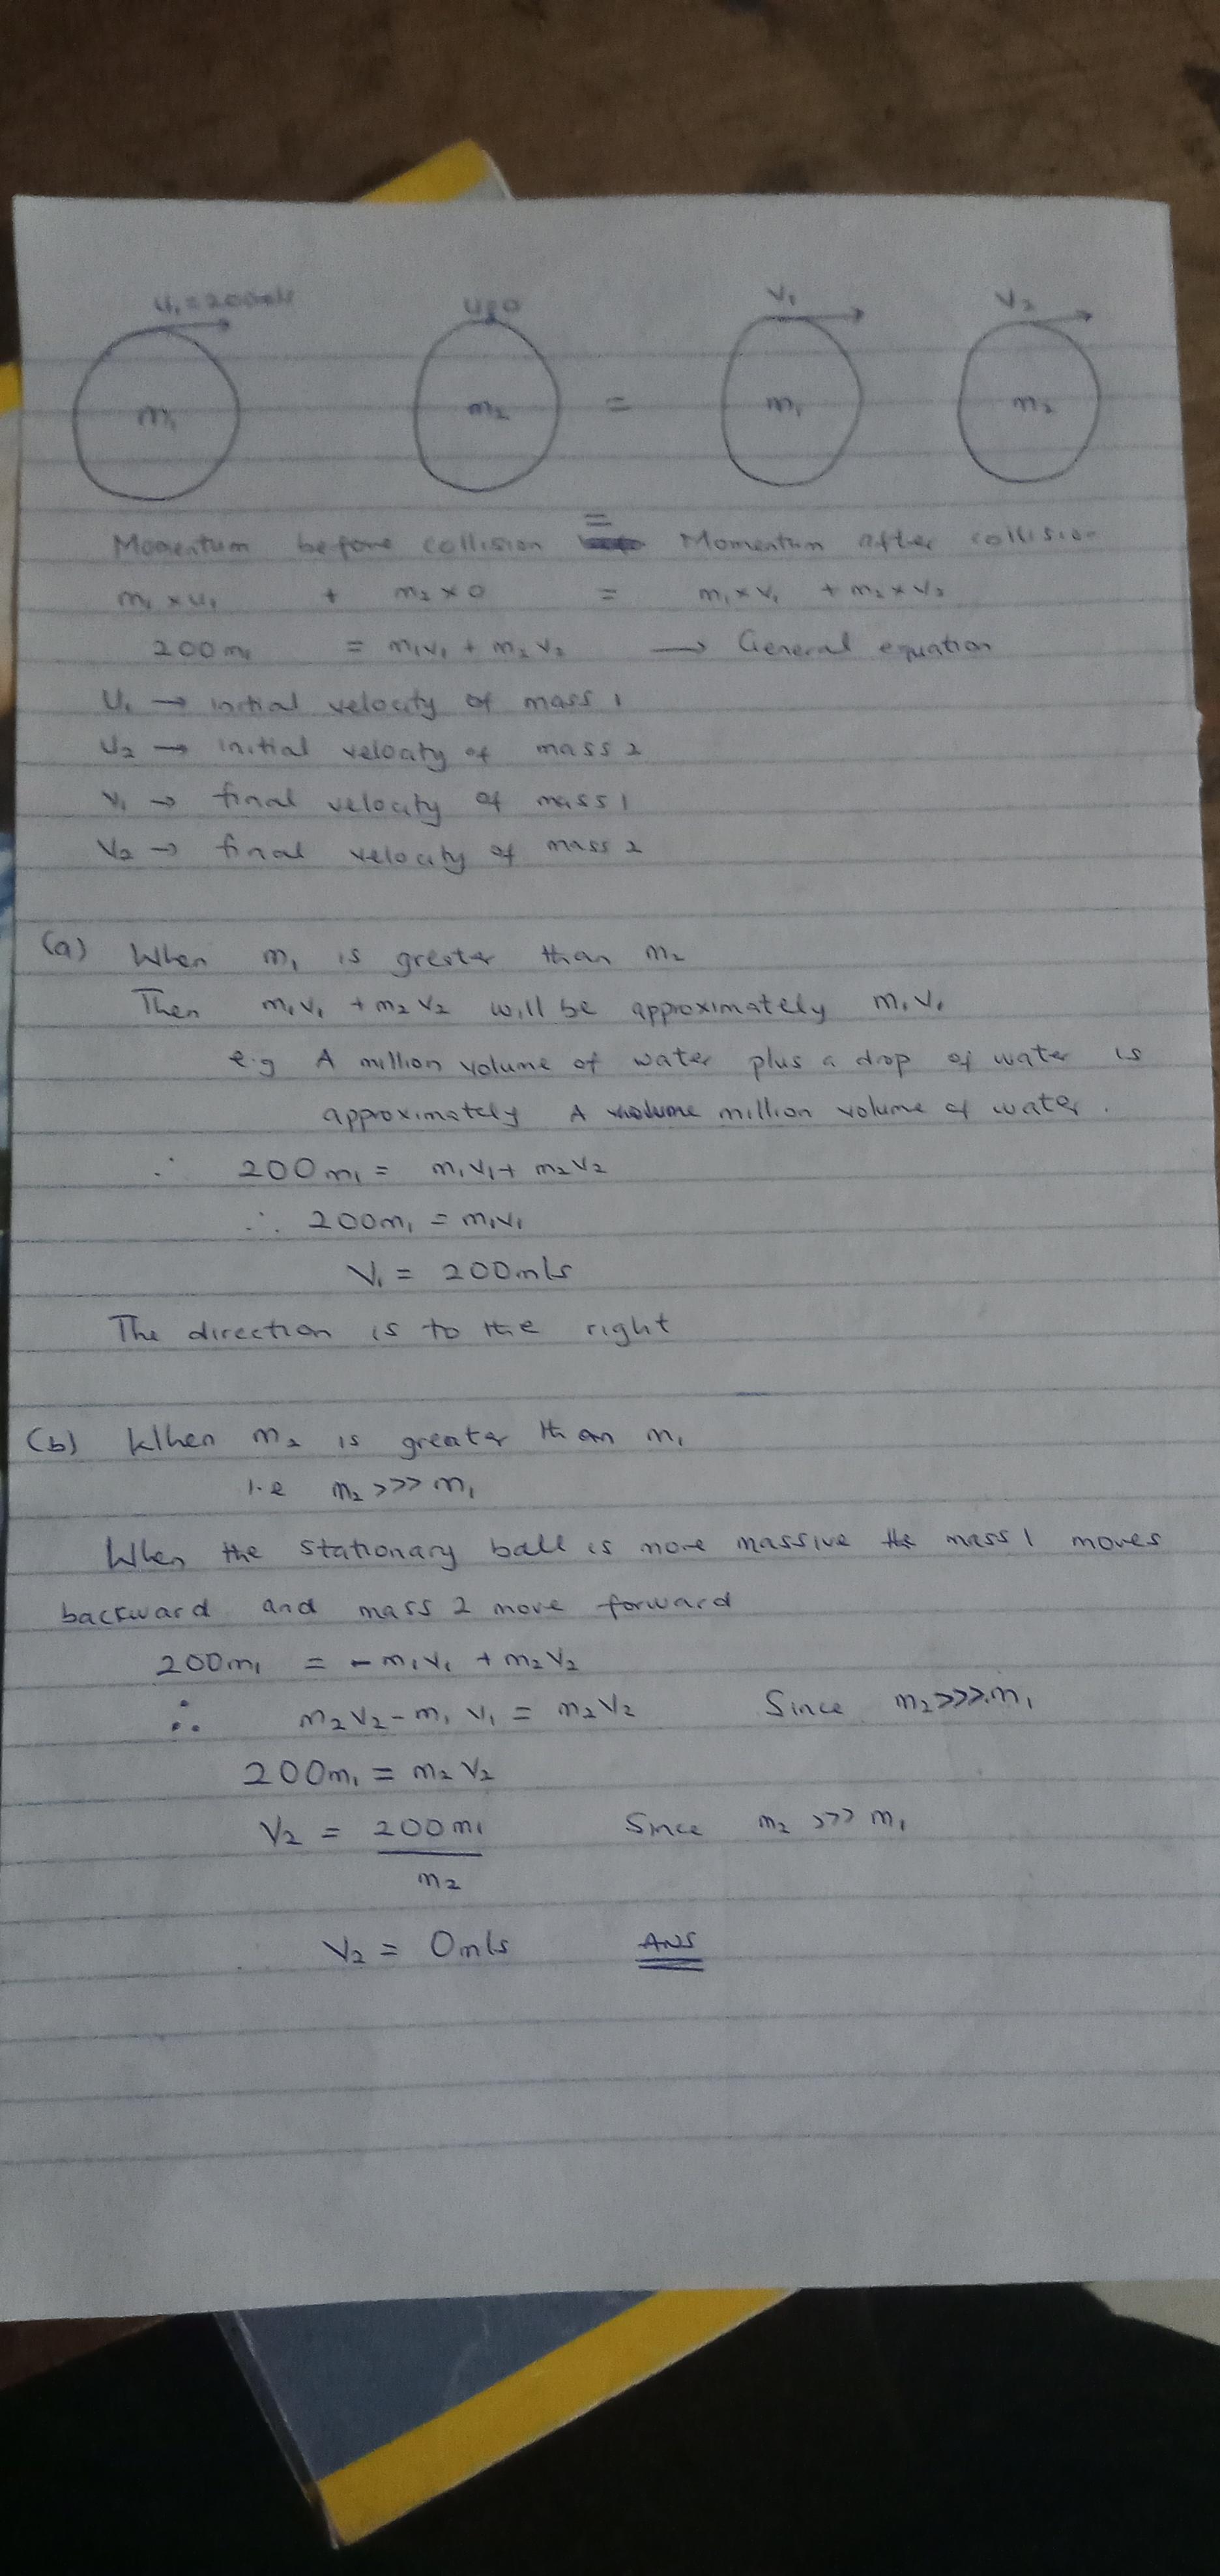 u₁ = 200m/s u₂=0 V₁ V₂
m₁ m₂ = m₁ m₂
Momentum before collision = Momentum after collision
m₁ x u₁ + m₂ x 0 = m₁ x v₁ + m₂ x v₂
200m₁ = m₁v₁ + m₂v₂ → General equation
U₁ → initial velocity of mass 1
U₂ → initial velocity of mass 2
V₁ → final velocity of mass 1
V₂ → final velocity of mass 2
(a) When m₁ is greater than m₂
Then m₁v₁ + m₂v₂ will be approximately m₁v₁
e.g A million volume of water plus a drop of water is
approximately A million volume of water.
∴ 200m₁ = m₁v₁+ m₂v₂
∴ 200m₁ = m₁v₁
V₁ = 200m/s
The direction is to the right
(b) When m₂ is greater than m₁
i.e m₂ >>> m₁
When the stationary ball is more massive the mass 1 moves
backward and mass 2 move forward
200m₁ = - m₁v₁ + m₂v₂
∴ m₂v₂ - m₁v₁ = m₂v₂ Since m₂>>>m₁
200m₁ = m₂v₂
V₂ = 200m₁ Since m₂ >>> m₁
m₂
V₂ = 0m/s ANS